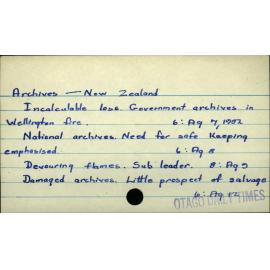 Archives — New Zealand
Incalculable loss. Government archives in
Wellington fire. 6: Ag 7, 1952
National archives. Need for safe keeping
emphasised. 6: Ag 8
Devouring flames. Sub leader. 8: Ag 9
Damaged archives. Little prospect of salvage
6: Ag 12
OTAGO DAILY TIMES